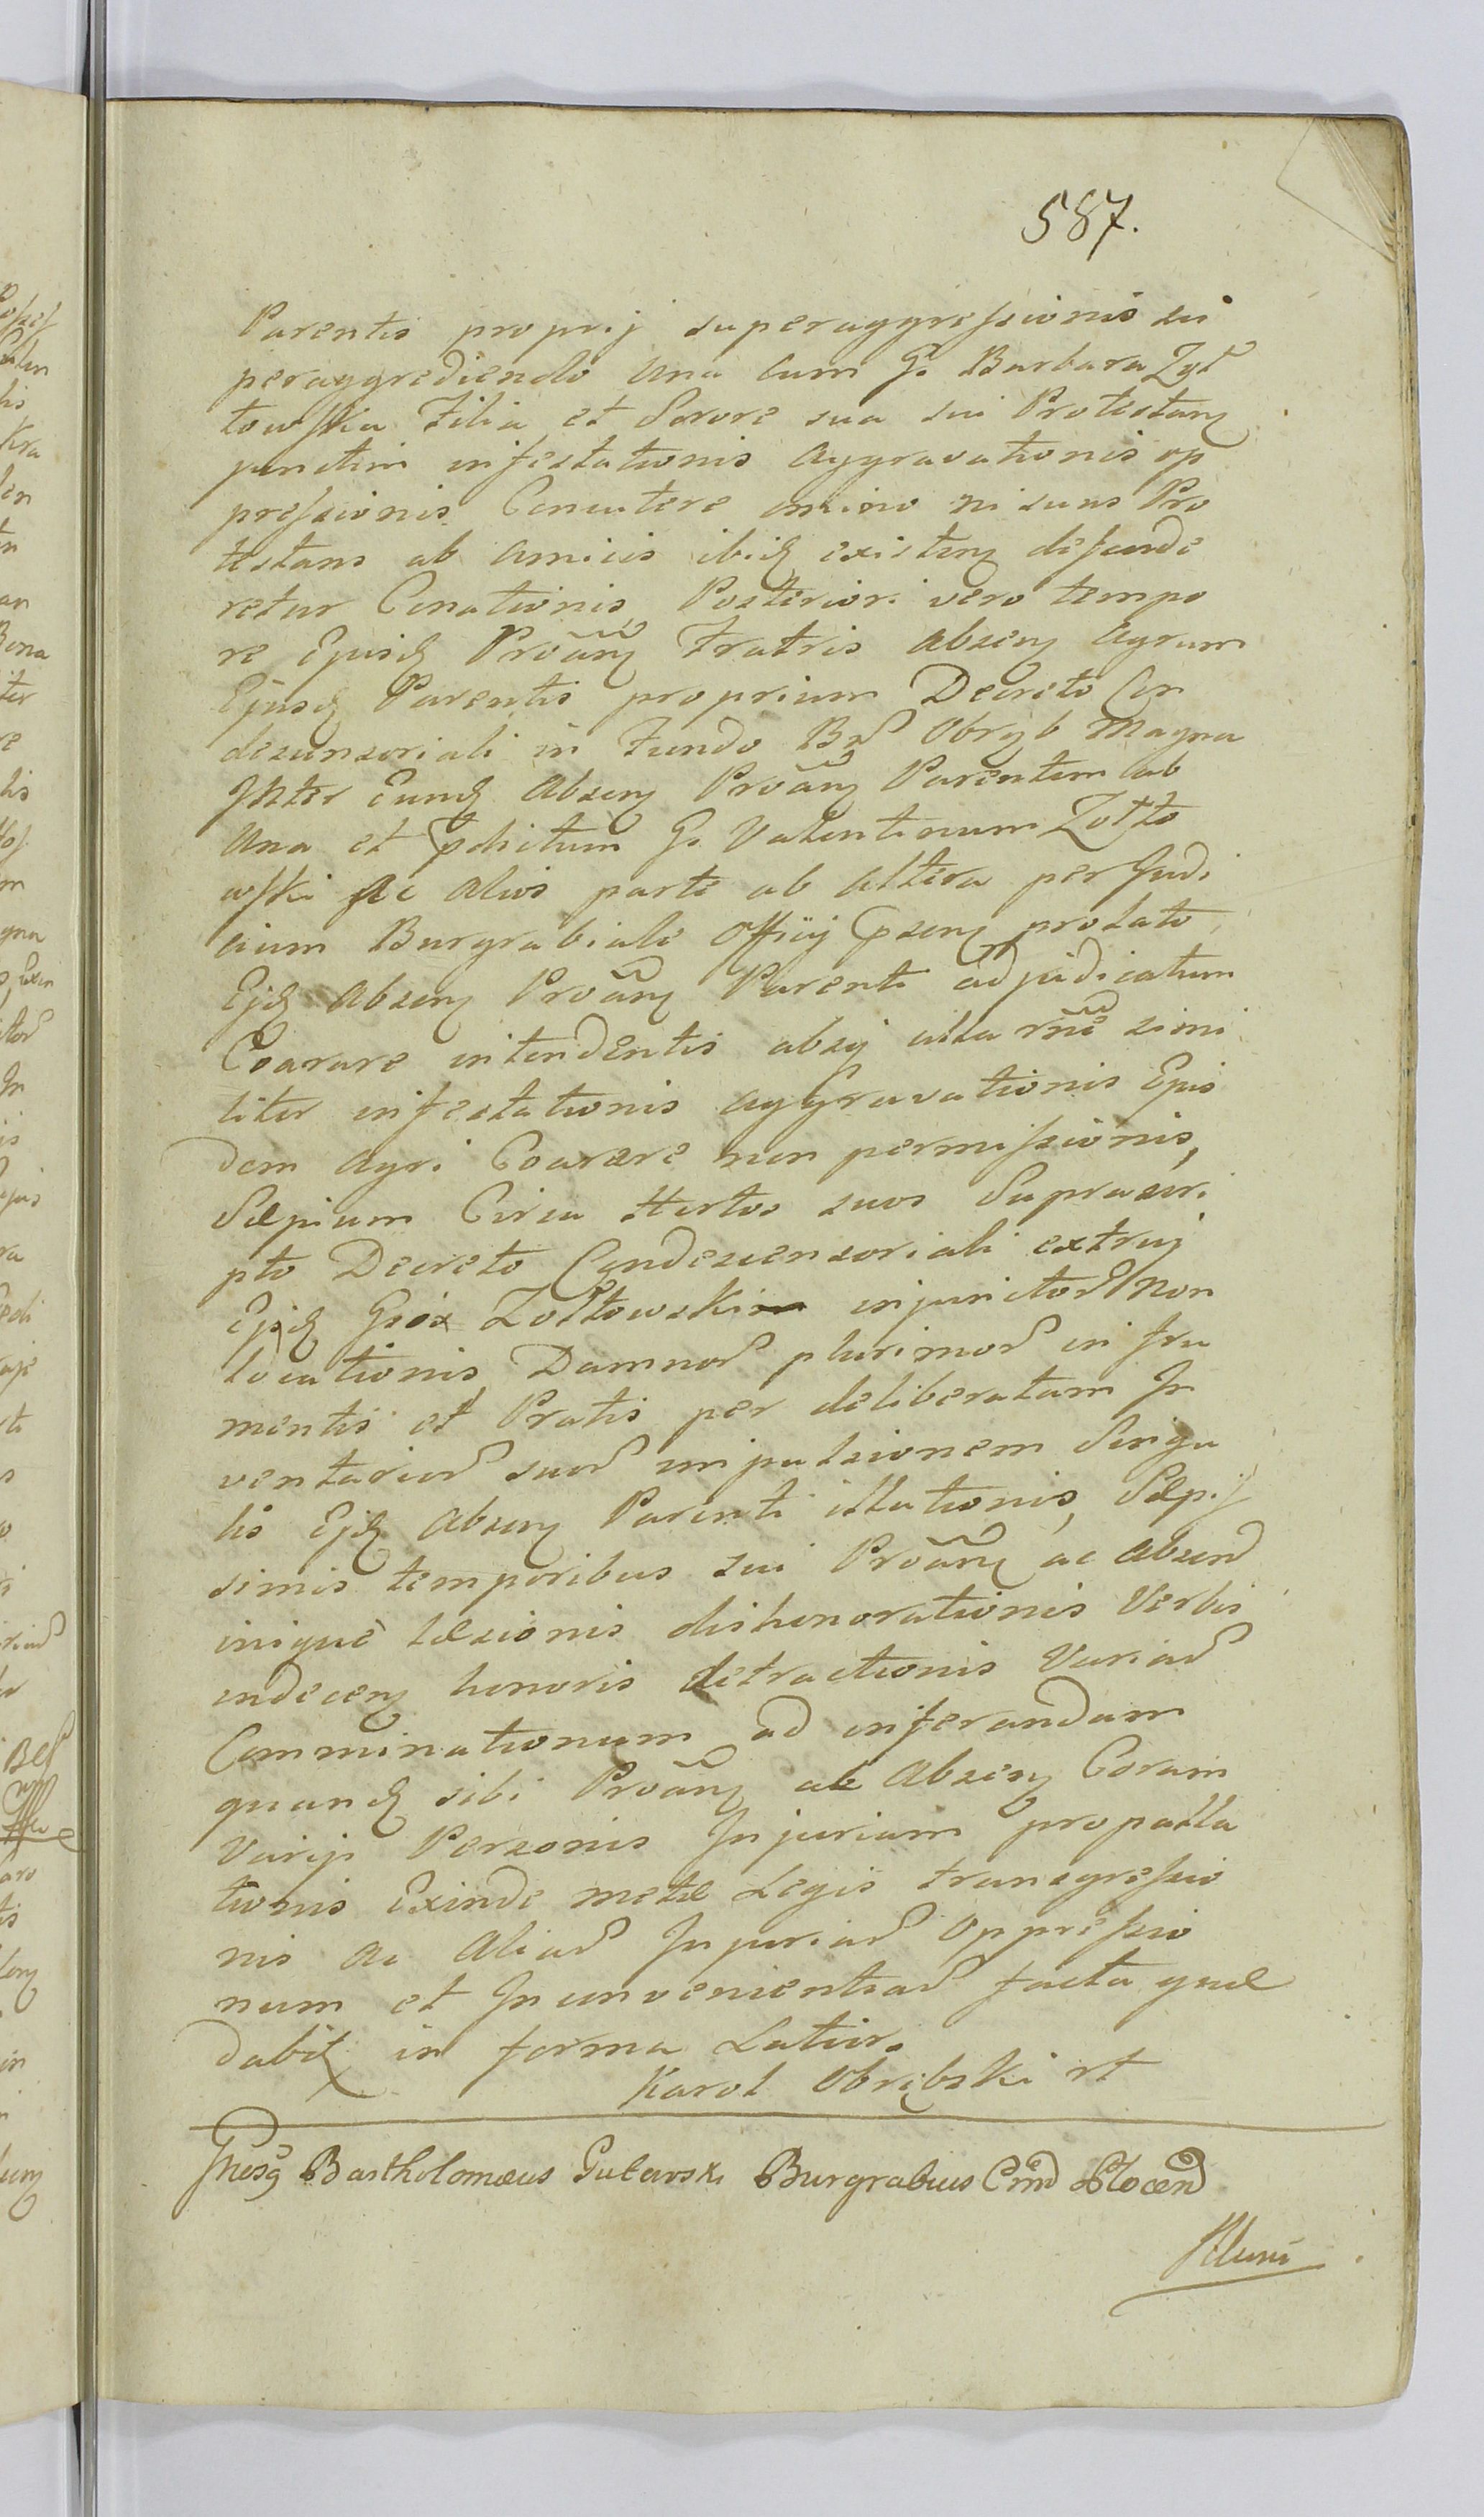 587.
Parentis proprij superaggressionis sui
peraggrediendo una cum G. Barbara Zoł
towska Filia et Sorore sua sui Protestanz
junctim infestationis aggravationis op
pressionis Concutere omnino ni suus Pro
testans ab amicis ibidz existenz defende
retur Conationis, Posteriori vero tempo
re Ejusdz Prõanz Fratris absenz Agrum
Ejusdz Parentis proprium Decreto Con
descensoriali in Fundo Bon Obryb Magna
Inter Eundz Absenz Prõanz Parentem ab
una et pdictum G. Valentinum Zołto
wski ac alios parte ab altera per Judi
cium Burgrabiale Officij psenz prolato
Ejdz Absenz Prõanz Parenti adjudicatum
Coarare intendentis absq illa rñe simi
liter infestationis aggravationis Ejus
dem Agri Coarare non permissionis,
Sæpium Circa Hortos suos Suprascri
pto Decreto Condescensoriali extruj
Ejsdz Gsos Zołtowskim injunctor non
locationis, Damnor plurimor in fru
mentis et Pratis per deliberatam In
ventarior suor impulsionem Singu
lis Ejdz Absenz Parenti illationis, Sæpis
simis temporibus sui Prõanz ac absen
inique læsionis dishonorationis Verbis
indecenz honoris detractionis Variar
Comminationum ad inferandam
quandz sibi Prõanz ac Absenz Coram
Varijs Personis Injuriam propalla
tionis Exinde metæ Legis transgressio
nis ac Aliar Injuriar Oppressio
num et Inconvenientiar facta quæ
dabit in forma Latior.
Karol Obrębski rt
Bartholomæus Gutowski Burgrabius Plocen